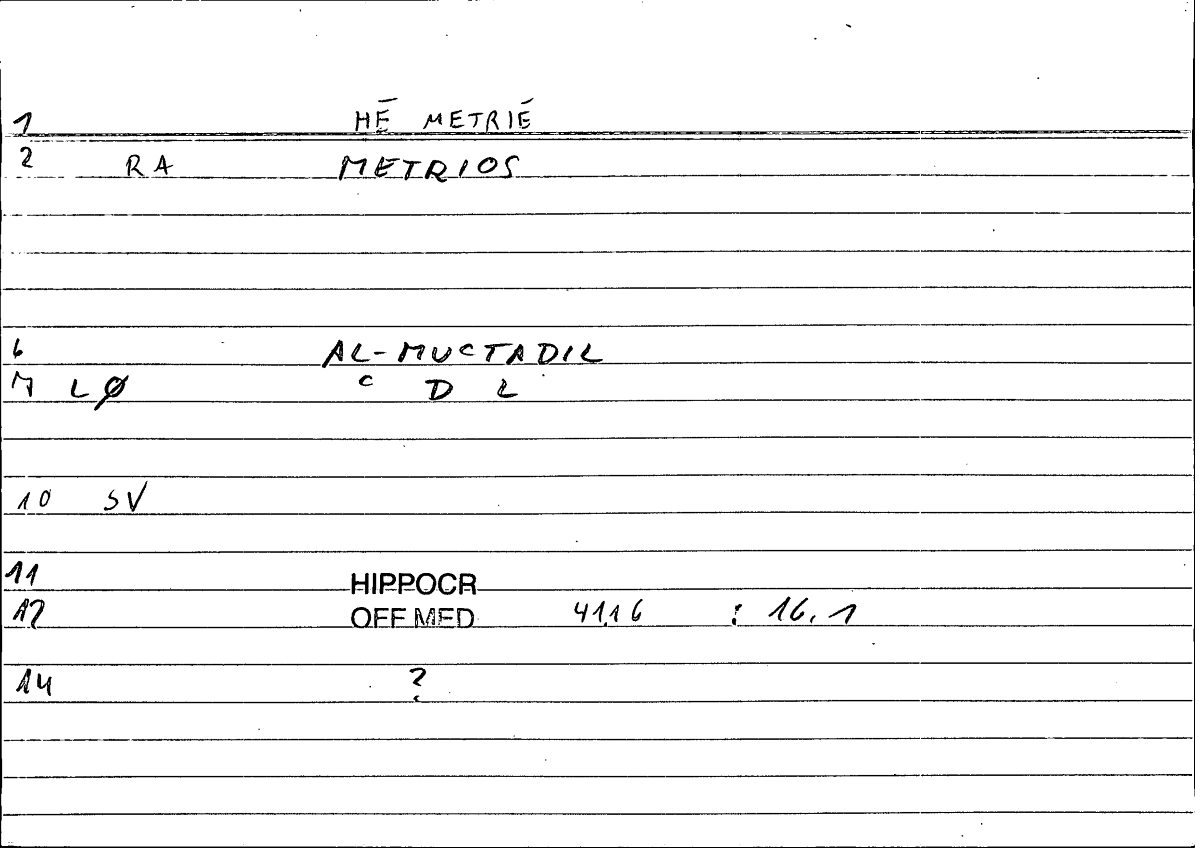 1 HĒ METRIĒ
2 RA METRIOS
6 AL-MUCTADIL
7 LØ C D L
10 SV
11 HIPPOCR
12 OFF MED 41,16 : 16,1
14 ?